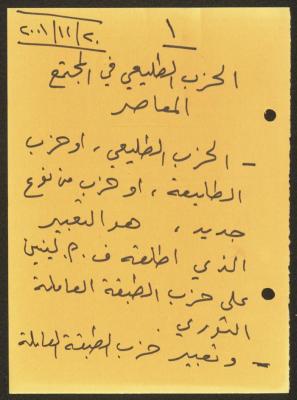 ٢٠٠١/١٢/٢٠
١
الحزب الطليعي في المجتمع
المعاصر
- الحزب الطليعي، او حزب
الطليعة، او حزب من نوع
جديد، هو التعبير
الذي اطلقه ف. م. لينين
على حزب الطبقة العاملة
الثوري
- وتعبير حزب الطبقة العاملة